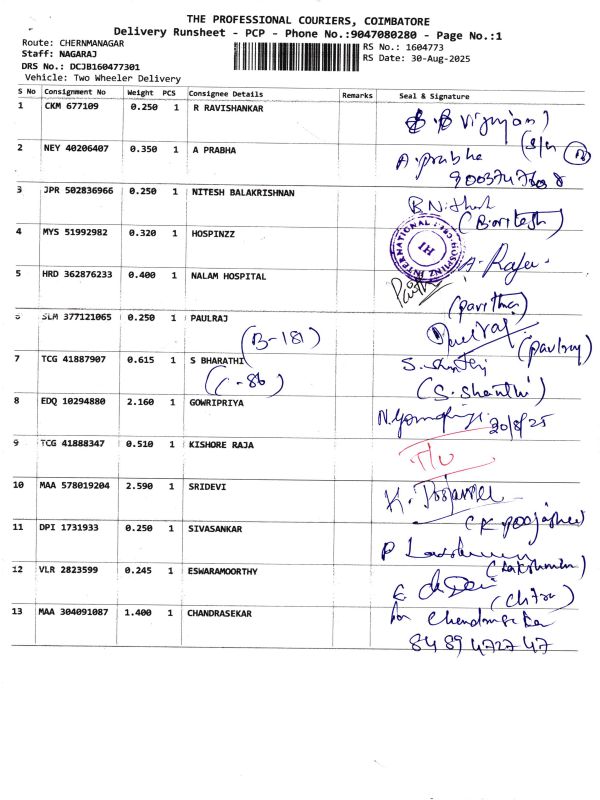 THE PROFESSIONAL COURIERS, COIMBATORE
Delivery Runsheet - PCP - Phone No.:9047080280 - Page No.:1
Route: CHERNMANAGAR
RS No.: 1604773
Staff: NAGARAJ
RS Date: 30-Aug-2025
DRS No.: DCJB160477301
Vehicle: Two Wheeler Delivery
S No Consignment No Weight PCS Consignee Details Remarks Seal & Signature
1 CKM 677109 0.250 1 R RAVISHANKAR
2 NEY 40206407 0.350 1 A PRABHA
A. prabha
3 JPR 502836966 0.250 1 NITESH BALAKRISHNAN
4 MYS 51992982 0.320 1 HOSPINZZ
A. Raja
5 HRD 362876233 0.400 1 NALAM HOSPITAL
(pavithra)
6 SLM 377121065 0.250 1 PAULRAJ
(B-181)
(paulraj)
7 TCG 41887907 0.615 1 S BHARATHI
(C-86)
(S. Shanthi)
8 EDQ 10294880 2.160 1 GOWRIPRIYA
30/8/25
9 TCG 41888347 0.510 1 KISHORE RAJA
10 MAA 578019204 2.590 1 SRIDEVI
11 DPI 1731933 0.250 1 SIVASANKAR
12 VLR 2823599 0.245 1 ESWARAMOORTHY
(Chitra)
13 MAA 304091087 1.400 1 CHANDRASEKAR
84 89 4727 47